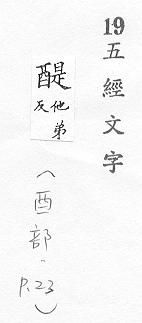 19
五經文字
醍
他弟
反
（酉部．
P.23）